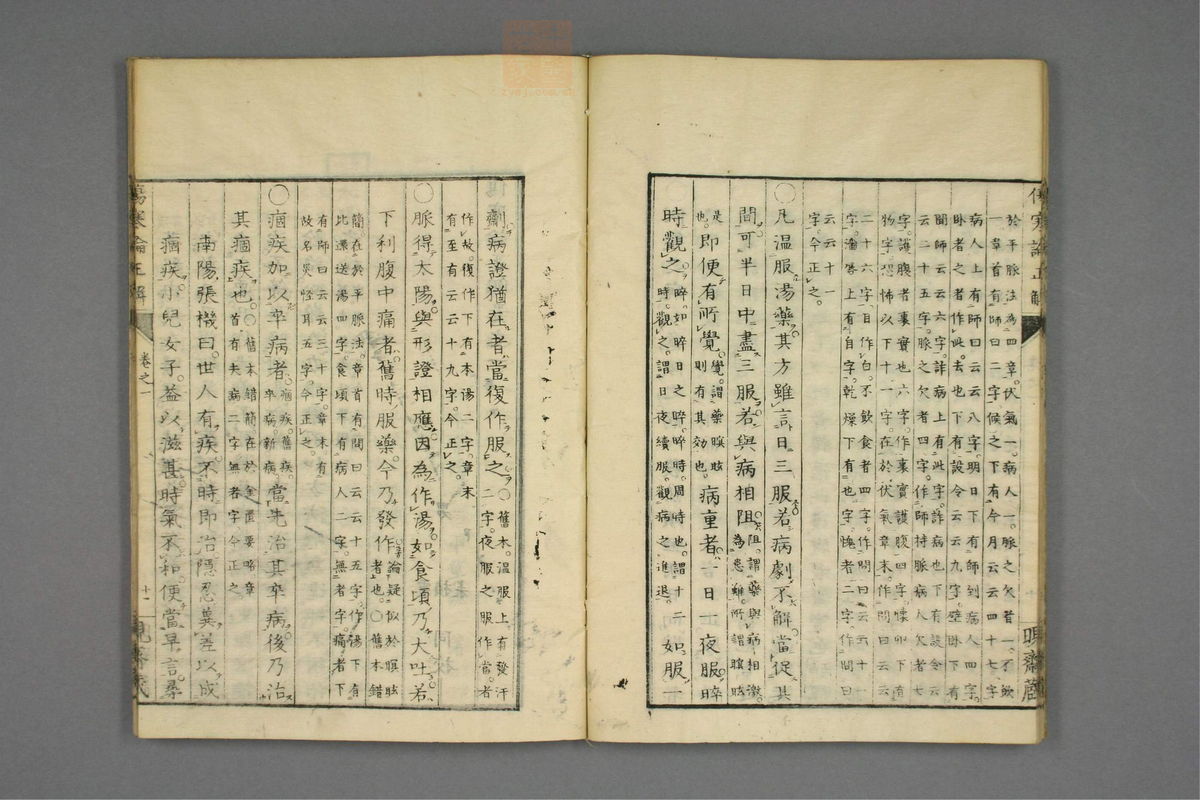 傷寒論正解
明齋藏
於平脉法為四章伏氣一病人一脉之欠者一不飲
一章首有師曰二字候之下有今月云云四十七字
病人上有師曰云云八字明日下有師到病人四字
臥者之者作此去也下有設令云云九字壁臥下有
聞師云云六字詐病上有此字詐病也下有設令云
云二十五字脉之欠者四字作師持脉病人欠者七
字護腹者裏實也六字作裏實護腹四字
物字恐怖以下十一字在於伏氣章末作問曰云云
二十六字面目作白不飲食者四字作問曰云云十
字上有自字乾燥下有也字愧者二字作問曰
云云十一
字今正之
○凡温服湯藥其方雖言日三服若病劇不解當促其
間可半日中盡三服若與病相阻阻謂藥與病相激為患雖所謂瞑眩
是也即便有所覺覺謂藥瞑眩則有其効也病重者一日一夜服晬
時觀之晬如晬日之晬晬時周時也謂十二時觀之謂日夜續服觀病之進退如服一
劑病證猶在者當復作服之○舊本温服上有發汗二字夜服之服作當者
作故復作下有本湯二字章末
有至有云云十九字今正之
○脉得太陽與形證相應因為作湯如食頃乃大吐若
下利腹中痛者舊時服藥今乃發作論疑似於瞑眩者也○舊本錯
簡在於平脉法章首有問曰云云十五字作湯下有
比還送湯四字食頃下有病人二字無者字痛者下
有師曰云云三十字章末有
故名灾怪耳五字今正之
○痼疾加以卒病者痼疾舊疾卒病新病當先治其卒病後乃治
其痼疾也○舊本錯簡在於金匱要略章首有夫病二字無者字今正之
南陽張機曰世人有疾不時即治隱忍冀差以成
痼疾小兒女子益以滋甚時氣不和便當早言尋
傷寒論正解
卷之一
十一